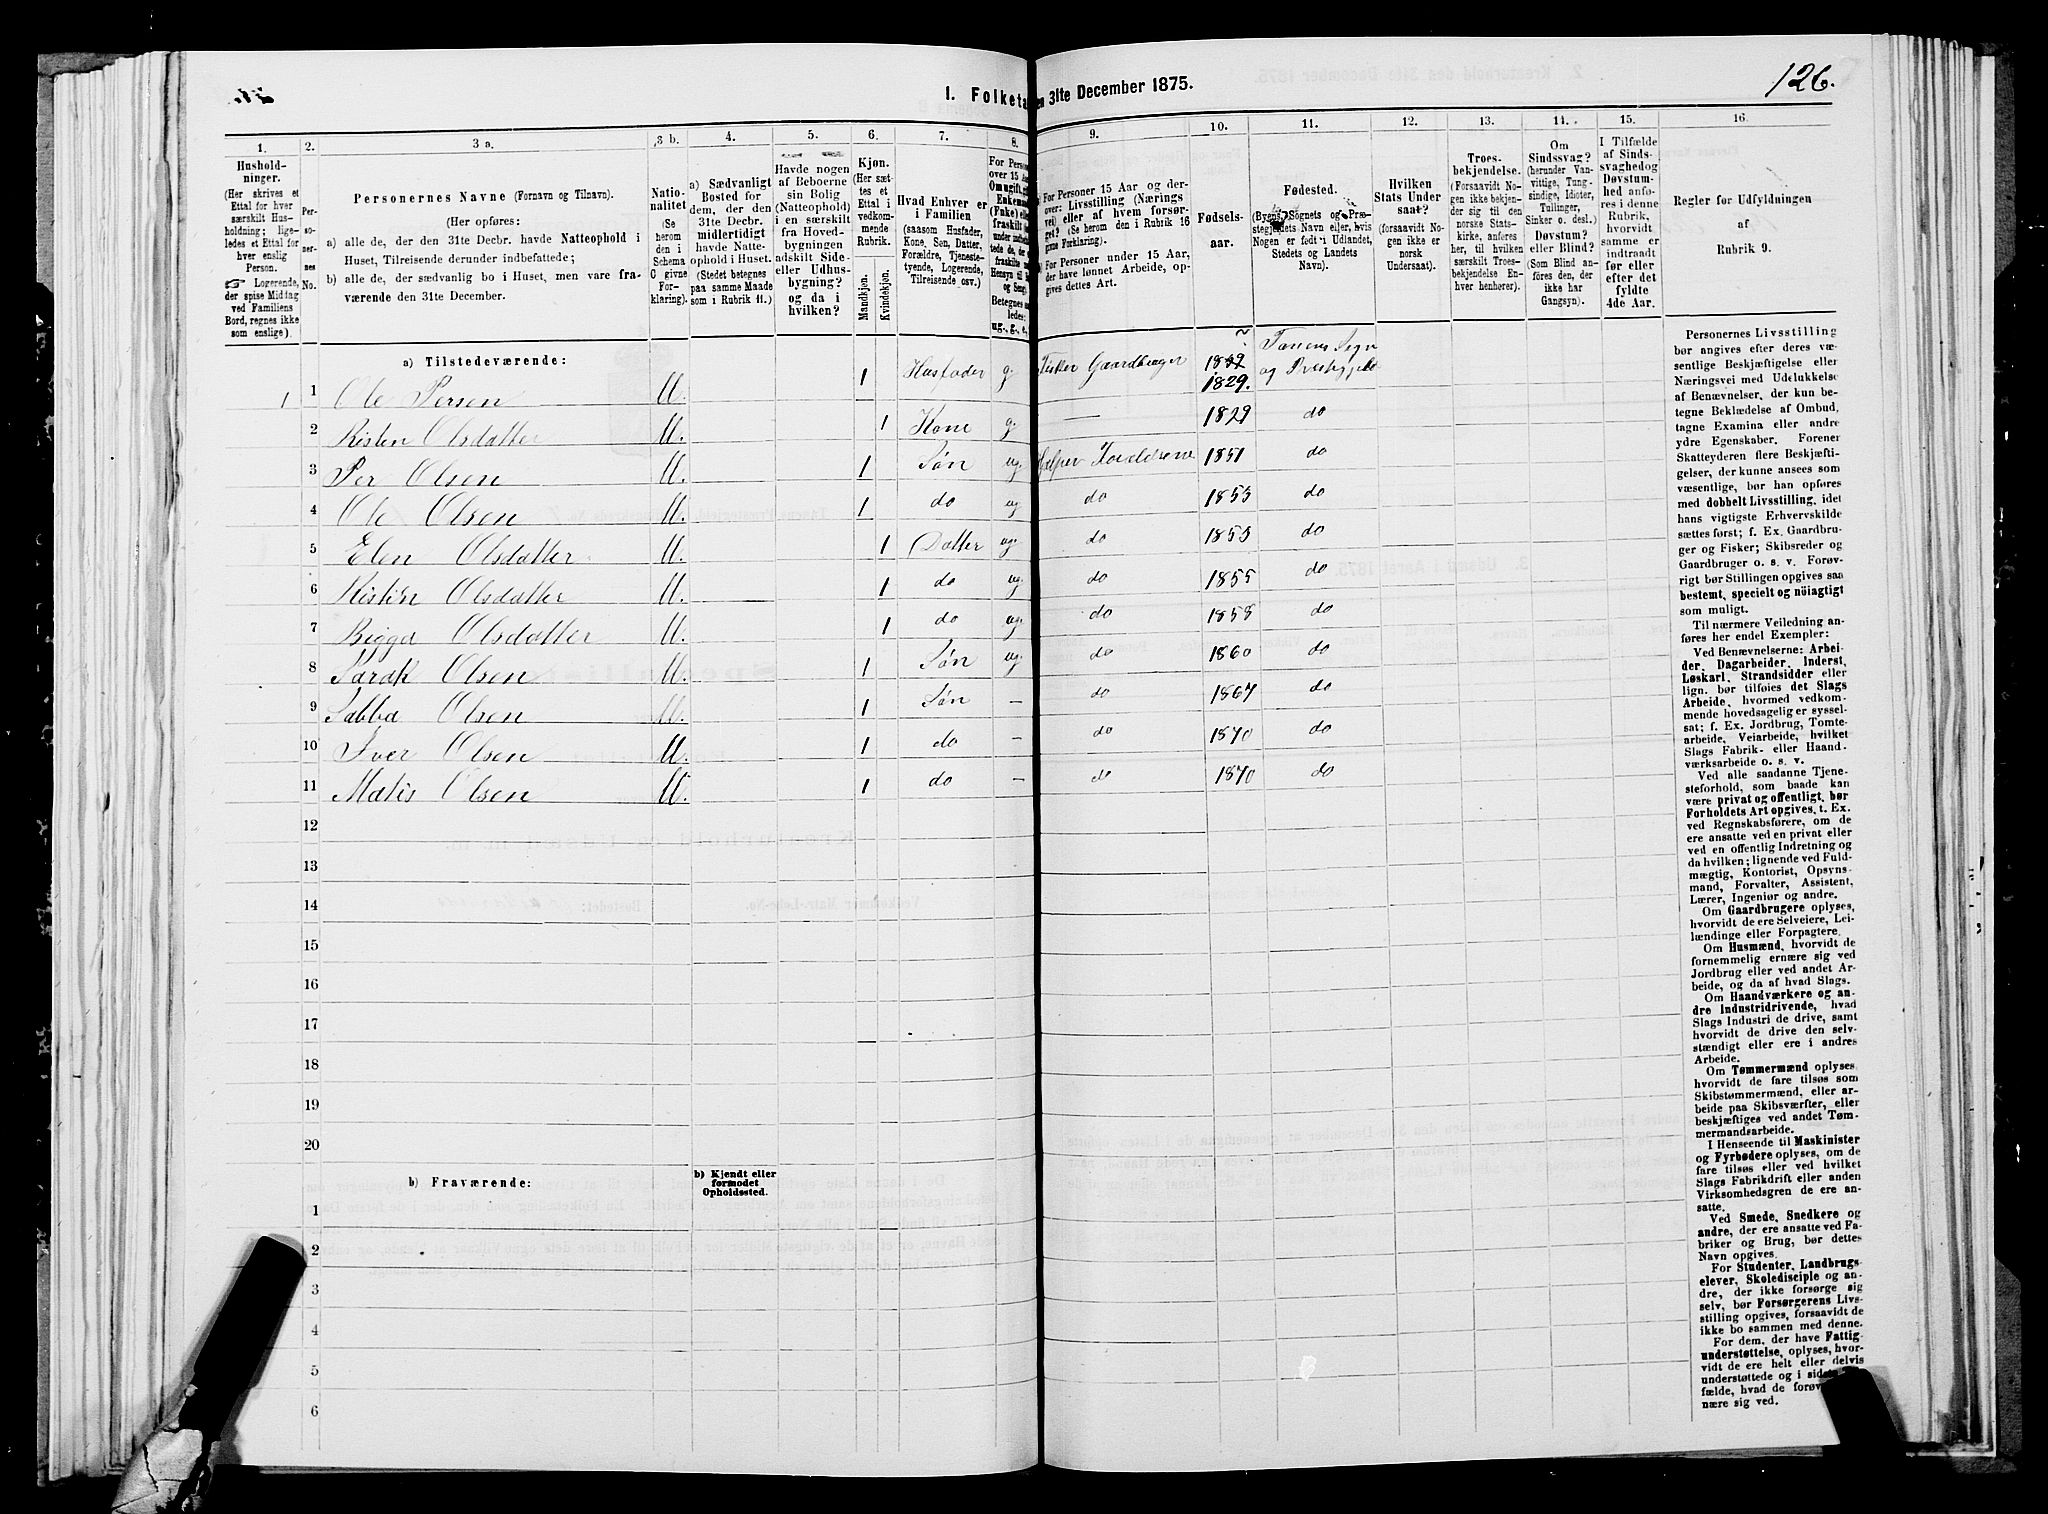 I. Folketa
en 31te December 1875.
126.
1. 2. 3 a. 3 b. 4. 5. 6. 7. 8. 9. 10. 11. 12. 13. 14. 15. 16.
Hushold-
ninger.
(Her skrives et
Ettal for hver
særskilt Hus-
holdning; lige-
ledes et Ettal for
hver enslig
Person.
☞ Logerende,
der spise Middag
ved Familiens
Bord, regnes ikke
som enslige).
Per-
so-
ner-
nes
No.
Personernes Navne (Fornavn og Tilnavn).
(Her opføres:
a) alle de, der den 31te Decbr. havde Natteophold i
Huset, Tilreisende derunder indbefattede;
b) alle de, der sædvanlig bo i Huset, men vare fra-
værende den 31te December.
Natio-
nalitet
(Se
herom
den i
Schema
C givne
For-
klaring).
a) Sædvanligt
Bosted for
dem, der den
31te Decbr.
midlertidigt
havde Natte-
ophold i Huset.
(Stedet betegnes
paa samme Maade
som i Rubrik 11.)
Havde nogen
af Beboerne
sin Bolig
(Natteophold)
i en særskilt
fra Hoved-
bygningen
adskilt Side-
eller Udhus-
bygning?
og da i
hvilken?
Kjøn.
(Her sæt-
tes et
Ettal i
vedkom-
mende
Rubrik.
Mandkjøn.
Kvindekjøn.
Hvad Enhver er
i Familien
(saasom Husfader,
Kone, Søn, Datter,
Forældre, Tjeneste-
tyende, Logerende,
Tilreisende osv.)
For Person
over 15 Aar
Om ugift,
Enkemand
(Enke) eller
fraskilt
Betegnes
ledes:
ug., g., e,
For Personer 15 Aar og der-
over: Livsstilling (Nærings
vei) eller af hvem forsør-
get? (Se herom den i Rubrik 16
givne Forklaring).
For Personer under 15 Aar,
der have lønnet Arbeide, op-
gives dettes Art.
Fødsels-
aar.
Fødested.
(Byens, Sognets og Præ-
stegjeldets Navn eller, hvis
Nogen er født i Udlandet,
Stedets og Landets
Navn).
Hvilken
Stats Under
saat?
(forsaavidt No-
gen ikke er
norsk
Undersaat).
Troes-
bekjendelse.
(Forsaavidt No-
gen ikke bekjen-
der sig til den
norske Stats-
kirke, anføres
her, til hvilken
særskilt Troes-
bekjendelse En-
hver henhører).
Om
Sindssvag?
(herunder Van-
vittige, Tung-
sindige, Idioter,
Tullinger,
Sinker o. desl.)
Døvstum?
eller Blind?
(Som Blind an-
føres den, der
ikke har
Gangsyn).
I Tilfælde
af Sinds-
svaghed og
Døvstum-
hed anfø-
res i denne
Rubrik,
hvorvidt
samme er
indtraadt
før eller
efter det
fyldte
4de Aar.
Regler for Udfyldningen
af
Rubrik 9.
a) Tilstedeværende:
1 1 Ole Persen U. 1 Husfader g. Fisker Gaardbruger 1832 1829. Tanens Sogn og Præstegjeld
2 Kisten Olsdatter U. 1 Kone g. — 1829 do
3 Per Olsen U. 1 Søn ug. hjelper Foreldrene 1851 do
4 Ole Olsen U. 1 do ug do 1853 do
5 Elen Olsdatter U. 1 Datter ug. do 1853 do
6 Kisten Olsdatter U. 1 do ug do 1855 do
7 Bigga Olsdatter U. 1 do ug. do 1858 do
8 Sarak Olsen U. 1 Søn ug. do 1860 do
9 Sabba Olsen U. 1 Søn — do 1867 do
10 Iver Olsen U. 1 do — do 1870 do
11 Matis Olsen U. 1 do — do 1870 do
12
13
14
15
16
17
18
19
20
b) Fraværende:
b) Kjendt eller
formodet
Opholdssted.
1
2
3
4
5
6
Personernes Livsstilling
bør angives efter deres væ-
sentlige Beskjæftigelse eller
Næringsvei med Udelukkelse
af Benævnelser, der kun be-
tegne Beklædelse af Ombud,
tagne Examina eller andre
ydre Egenskaber. Forener
Skatteyderen flere Beskjæfti-
gelser, der kunne ansees som
væsentlige, bør han opføres
med dobbelt Livsstilling, idet
hans vigtigste Erhvervskilde
sættes først; f. Ex. Gaardbru-
ger og Fisker; Skibsreder og
Gaardbruger o. s. v. Forøv-
rigt bør Stillingen opgives saa
bestemt, specielt og nöiagtigt
som muligt.
Til nærmere Veiledning an-
føres her endel Exempler:
Ved Benævnelserne: Arbei-
der, Dagarbeider, Inderst,
Løskarl, Strandsidder eller
lign. bør tilføies det Slags
Arbeide, hvormed vedkom-
mende hovedsagelig er syssel-
sat; f. Ex. Jordbrug, Tomte-
arbeide, Veiarbeide, hvilket
Slags Fabrik- eller Haand-
værksarbeide o. s. v.
Ved alle saadanne Tjene-
steforhold, som baade kan
være privat og offentligt, bør
Forholdets Art opgives, t. Ex.
ved Regnskabsførere, om de
ere ansatte ved en privat eller
ved en offentlig Indretning og
da hvilken; lignende ved Fuld-
mægtig, Kontorist, Opsyns-
mand, Forvalter, Assistent,
Lærer, Ingeniør og andre.
Om Gaardbrugere oplyses,
hvorvidt de ere Selveiere, Lei-
lændinge eller Forpagtere.
Om Husmænd, hvorvidt de
fornemmelig ernære sig ved
Jordbrug eller ved andet Ar-
beide, og da af hvad Slags.
Om Haandværkere og an-
dre Industridrivende, hvad
Slags Industri de drive, samt
hvorvidt de drive den selv-
stændigt eller ere i andres
Arbeide.
Om Tømmermænd oplyses
hvorvidt de fare tilsøs som
Skibstømmermænd, eller ar-
beide paa Skibsværfter, eller
beskjæftiges ved andet Tøm-
mermandsarbeide.
I Henseende til Maskinister
og Fyrbødere oplyses, om de
fare tilsøs eller ved hvilket
Slags Fabrikdrift eller anden
Virksomhedsgren de ere an-
satte.
Ved Smede, Snedkere og
andre, der ere ansatte ved Fa-
briker og Brug, bør dettes
Navn opgives.
For Studenter, Landbrugs-
elever, Skoledisciple og an-
dre, der ikke forsørge sig
selv, bør Forsørgerens Livs-
stilling opgives, forsaavidt de
ikke bo sammen med denne.
For dem, der have Fattig-
understøttelse, oplyses, hvor-
vidt de ere helt eller delvis
understøttede og i sidste
fælde, hvad de forøv
nære sig ved.